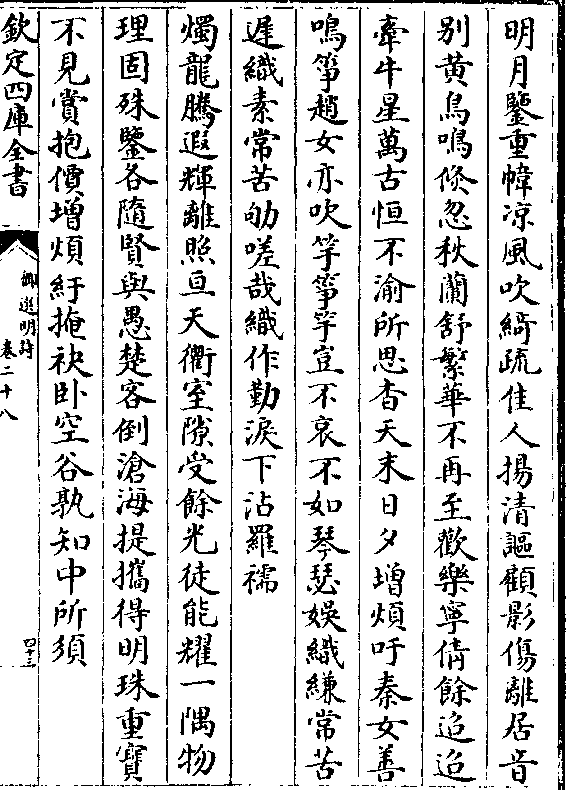 明月鑒重幃凉風吹綺疏佳人揚清謳顧影傷離居音
别黄鳥鳴倐忽秋蘭舒繁華不再至歡樂寧倩餘迢迢
牽牛星萬古恒不渝所思杳天末日夕增煩吁秦女善
鳴筝趙女亦吹竽筝竽豈不哀不如琴瑟娛織縑常苦
遲織素常苦劬嗟哉織作勤淚下沾羅襦
燭龍騰遐輝離照亘天衢室隙受餘光徒能耀一隅物
理固殊鑒各隨賢與愚楚客倒滄海提攜得明珠重寶
不見賞抱價增煩紆掩袂卧空谷孰知中所須
欽定四庫全書
御選明詩
卷二十八
四十三